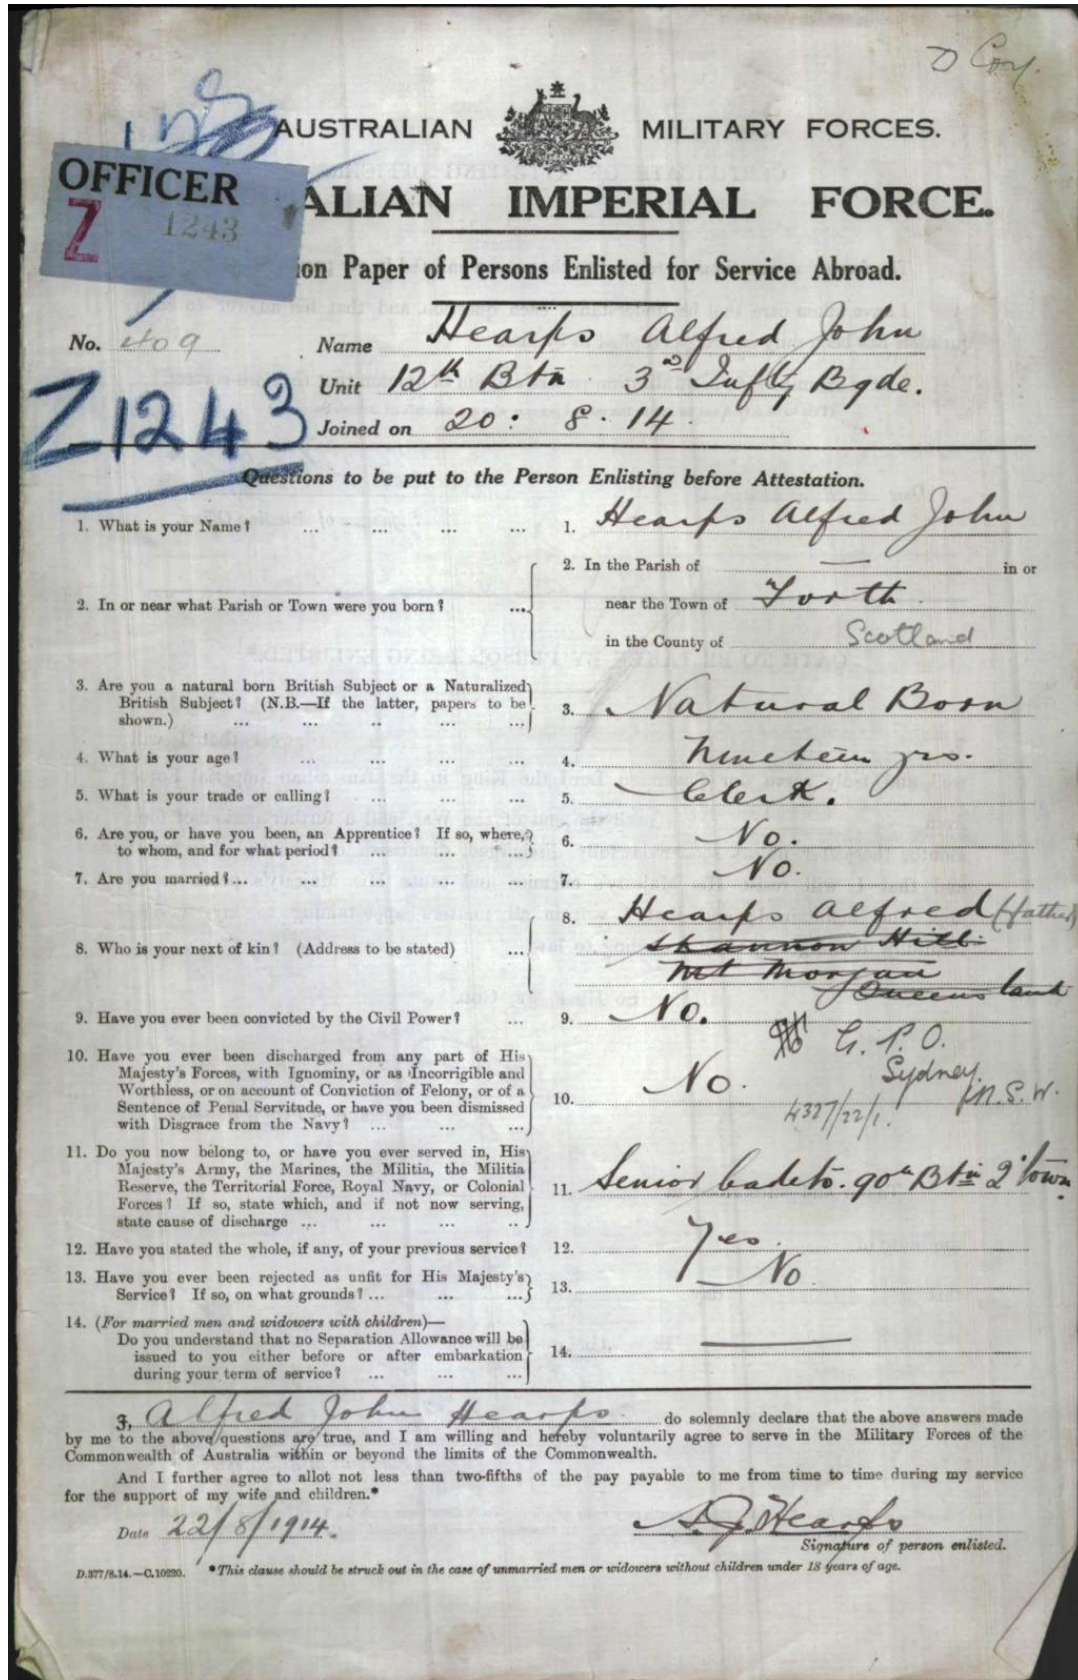 D Coy.
AUSTRALIAN MILITARY FORCES.
OFFICER
Z 1243
ALIAN IMPERIAL FORCE.
ion Paper of Persons Enlisted for Service Abroad.
No. 409 Name Hearps Alfred John
Unit 12th Btn 3rd Inftry Bgde.
Z1243
Joined on 20: 8. 14.
Questions to be put to the Person Enlisting before Attestation.
1. What is your Name? ... ... ... ... 1. Hearps Alfred John
2. In or near what Parish or Town were you born? ... 2. In the Parish of — in or
near the Town of Forth
in the County of Scotland
3. Are you a natural born British Subject or a Naturalized
British Subject? (N.B.—If the latter, papers to be
shown.) ... ... .. .. ... 3. Natural Born
4. What is your age? ... ... ... ... 4. Nineteen yrs.
5. What is your trade or calling? ... ... ... 5. Clerk.
6. Are you, or have you been, an Apprentice? If so, where,
to whom, and for what period? ... ... ... 6. No.
7. Are you married? ... ... ... ... ... 7. No.
8. Who is your next of kin? (Address to be stated) ... 8. Hearps Alfred (father)
Shannon Hill
Mt Morgan
Queensland
9. Have you ever been convicted by the Civil Power? ... 9. No.
G. P. O.
Sydney
N. S. W.
4327/22/1.
10. Have you ever been discharged from any part of His
Majesty's Forces, with Ignominy, or as Incorrigible and
Worthless, or on account of Conviction of Felony, or of a
Sentence of Penal Servitude, or have you been dismissed
with Disgrace from the Navy? ... ... ... 10. No.
11. Do you now belong to, or have you ever served in, His
Majesty's Army, the Marines, the Militia, the Militia
Reserve, the Territorial Force, Royal Navy, or Colonial
Forces? If so, state which, and if not now serving,
state cause of discharge ... ... ... .. 11. Senior Cadets. 90th Btn Q'town.
12. Have you stated the whole, if any, of your previous service? 12. Yes.
13. Have you ever been rejected as unfit for His Majesty's
Service? If so, on what grounds? ... ... ... 13. No.
14. (For married men and widowers with children)—
Do you understand that no Separation Allowance will be
issued to you either before or after embarkation
during your term of service? ... ... ... 14. —
I, Alfred John Hearps do solemnly declare that the above answers made
by me to the above questions are true, and I am willing and hereby voluntarily agree to serve in the Military Forces of the
Commonwealth of Australia within or beyond the limits of the Commonwealth.
And I further agree to allot not less than two-fifths of the pay payable to me from time to time during my service
for the support of my wife and children.*
Date 22/8/1914. A. J. Hearps
Signature of person enlisted.
D.377/8.14.—C.10220. *This clause should be struck out in the case of unmarried men or widowers without children under 18 years of age.